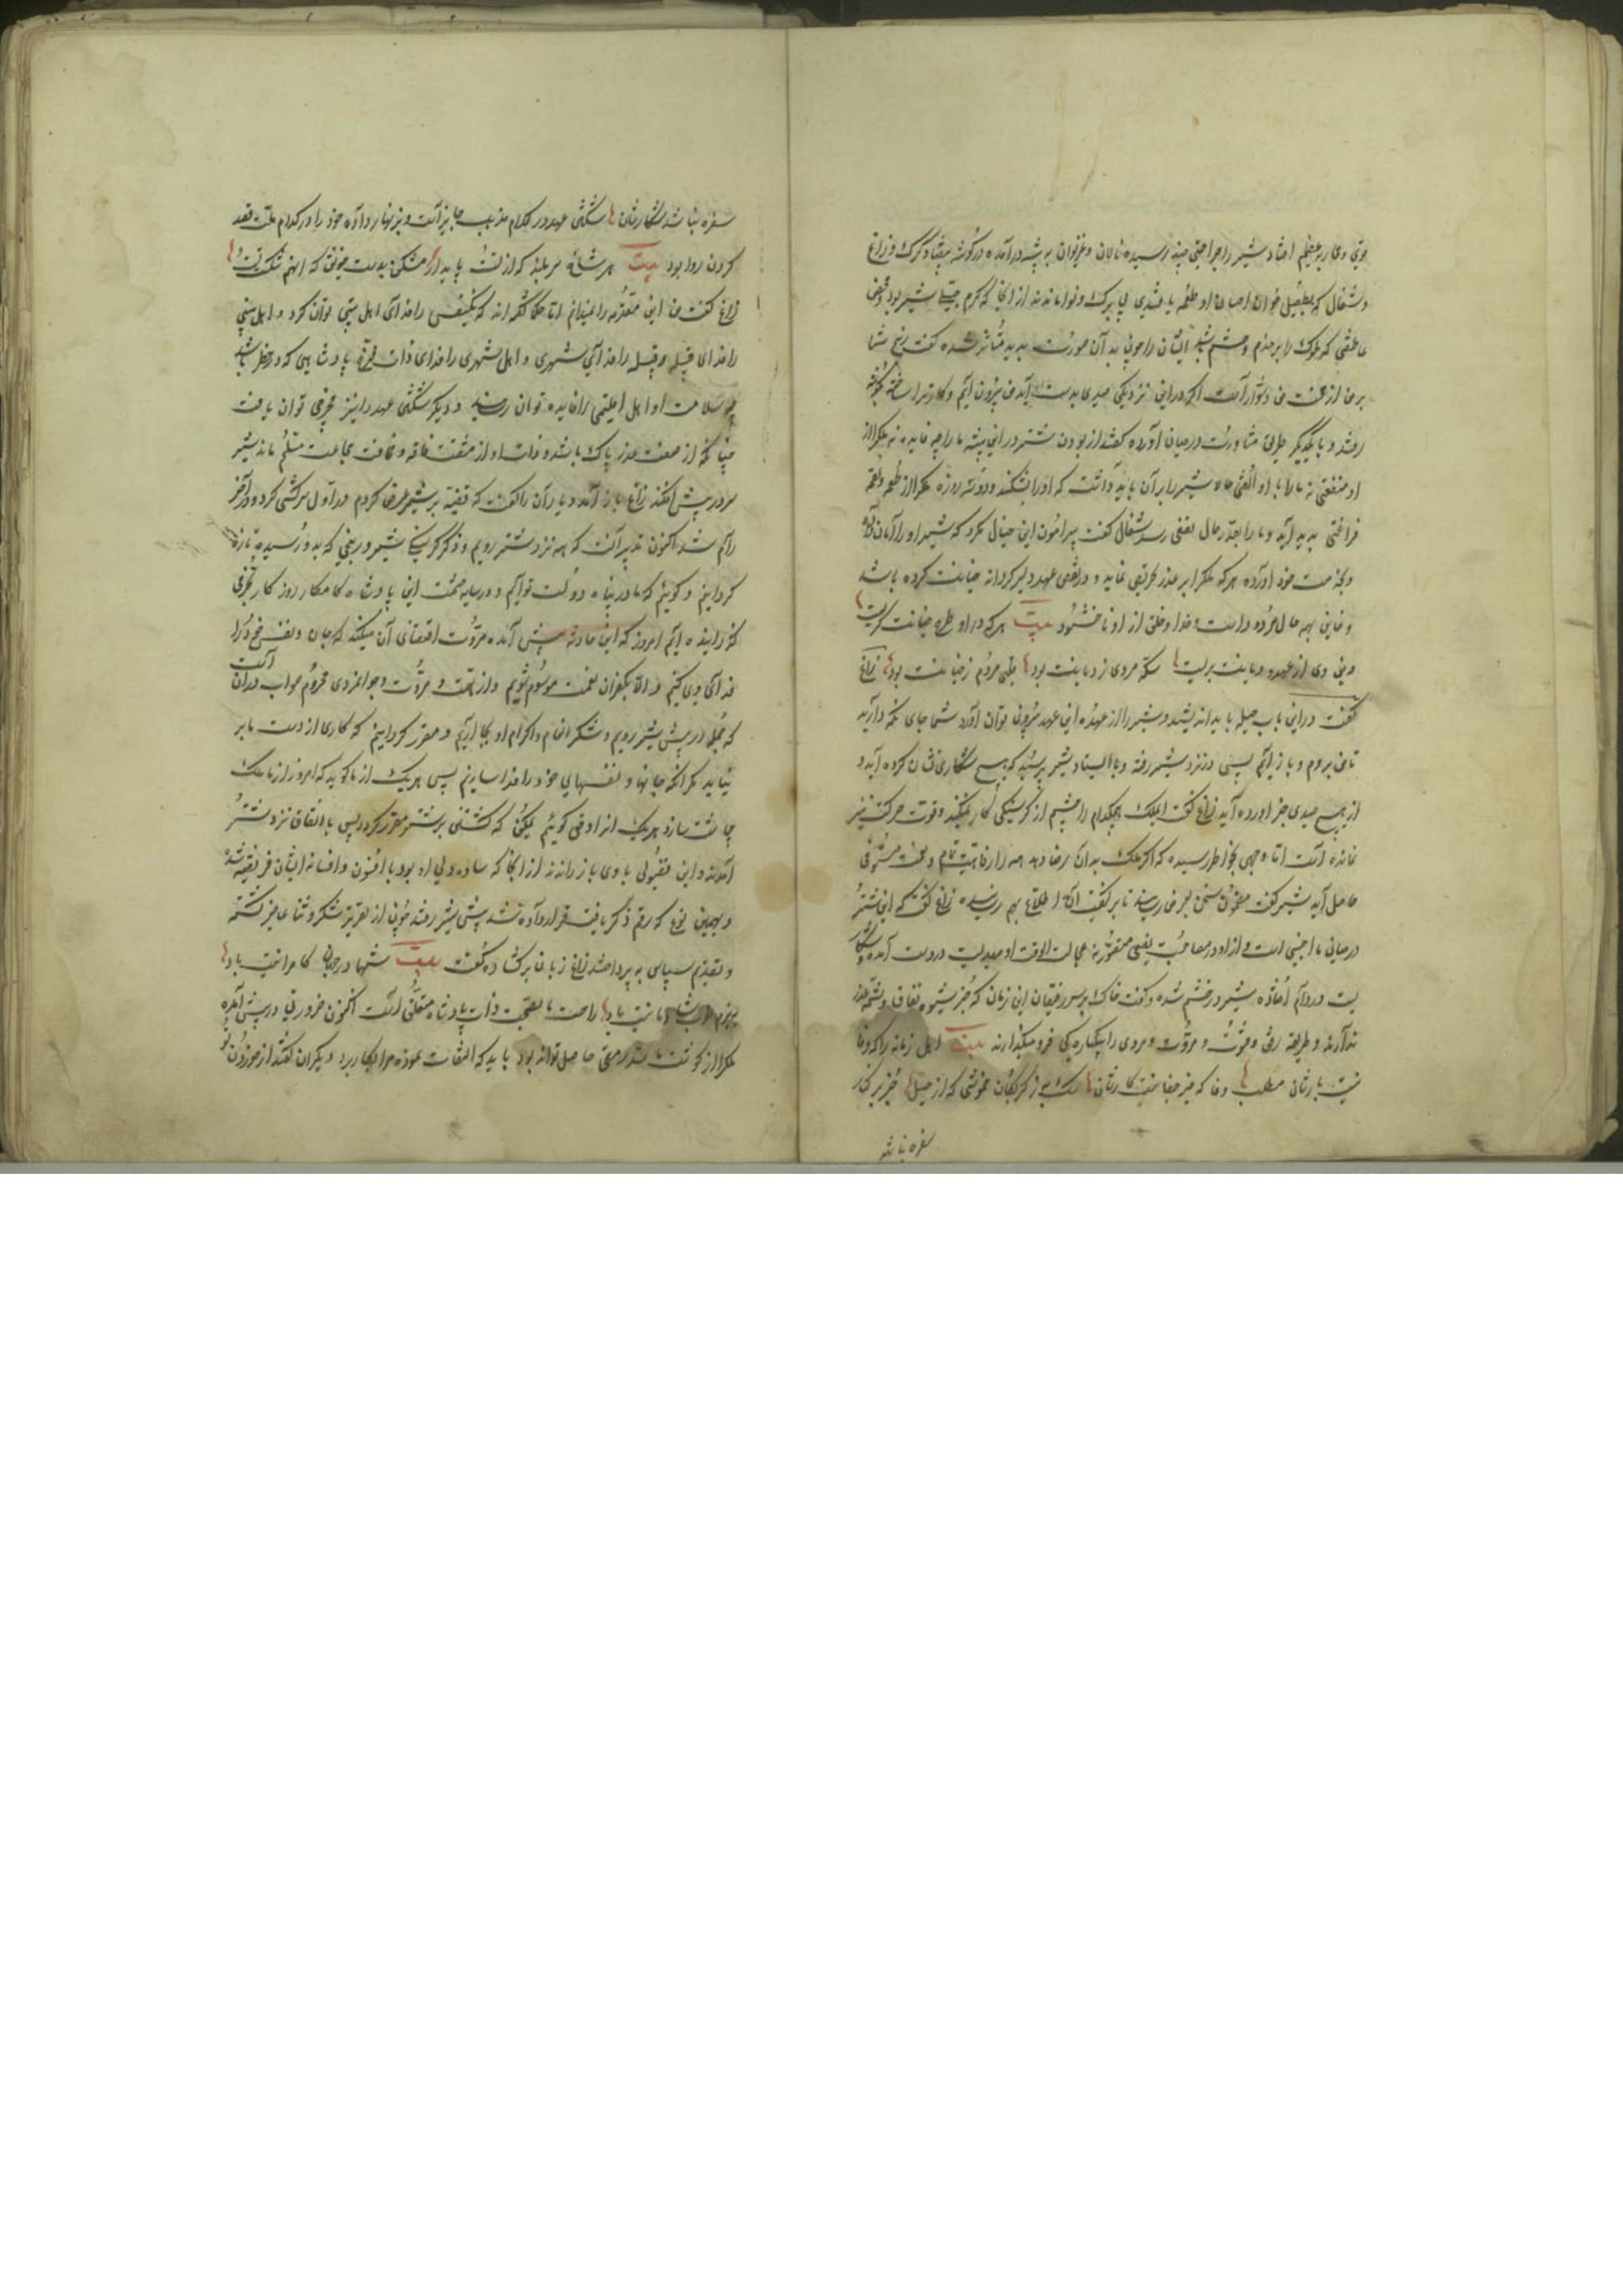 قوی و محاربه عظیم افتاد شیر را جراحتی چند رسیده نالان و غریوان به بیشه درآمده در گوشه بیفتاد گرگ و زاغ
و شغال که بطفیل خوان احسان او طعمه یافتندی بی برگ و نوا ماندند از آنجا که کرم شیر بود و
عاطفتی که ملوک را بر خدم و حشم باشد ایشان را چون بدان صورت بدید متأثر شده گفت رنج شما
بر من از محنت من دشوارتر است اگر درین نزدیکی صیدی بدست آید من بیرون آیم و کار شما ساخته
رفتند و با یکدیگر طرح مشاورت در میان آورده گفتند از بودن شتر درین بیشه ما را چه فایده نه ملک را از
او منفعتی نه ما را با او الفتی حالا شیر را بر آن باید داشت که او را بشکند و دو سه روزه ملک را از طعمه
فراغتی پدید آید و ما را بقدر حال نفعی رسد شغال گفت پیرامون این خیال مگرد که شیر او را امان داده
و بخدمت خود آورده هر که ملک را بر غدر تحریض نماید و در نقض عهد دلیر گرداند خیانت کرده باشد
و خاین همه حال مردود است و خدا و خلق از او ناخشنود بیت هر که در او طره خیانت گریست
دین وی از عهده دیانت بریست سکه مردی ز دیانت بود زاغ
گفت درین باب حیله باید اندیشید و شیر را از عهده این عهد بیرون توان آورد شما جای نگه دارید
تا من بروم و باز آیم پس در نزد شیر رفته و بایستاد شیر پرسید که هیچ شکاری نشان کرده آید و
از هیچ صیدی خبر آورده آید زاغ گفت ای ملک هیچکدام را چشم از گرسنگی کار نمیکند و قوت حرکت نیز
نمانده است اما وجهی بخاطر رسیده که اگر ملک بدان رضا دهد همه را رفاهیت تمام و نعمت مستوفی
حاصل آید شیر گفت مضمون سخن بعرض رسان تا بر کیفیت آن اطلاع بهم رسد زاغ گفت که این شتر
در میان ما اجنبی است و از او در مصاحبت نفعی متصور نه عجالة الوقت او صیدیست در دست آمده و شکار
یست در دام افتاده شیر در خشم شده و گفت خاک بر سر رفیقان این زمان که جز شیوه نفاق و شیمه غدر
ندارند و طریقه رفق و فتوت و مروت و مردی را بیکبارگی فرو میگذارند بیت اهل زمانه را که وفا
نیست یارشان مطلب وفا که جز جفا نیست کارشان
سفره نباشد
سفره نباشد شکارشان شکستن عهد در کدام مذهب جایز است و بزنهار داده خود را در کدام ملت قصد
کردن روا بود بیت هر شاخ سر بلند که از تست پایدار مشکن بدست خویش که آنهم شکست تست
زاغ گفت من این مقدمه را میدانم اما حکما گفته اند که یکنفس را فدای اهل بیتی توان کرد و اهل بیتی
را فدای قبیله و قبیله را فدای شهری و اهل شهری را فدای ذات پادشاهی که در خطر باشد
چه سلامت او اهل اقلیمی را فایده توان رساند و دیگر شکستن عهد را نیز مخرجی توان یافت
چنانکه از صفت غدر پاک باشد و ذات او از مشقت فاقه و مخافت مجاعت مسلم ماند شیر
سر در پیش افکند زاغ باز آمد و یاران را گفت که قضیه بر شیر عرض کردم در اول سرکشی کرد و در آخر
رام شد اکنون تدبیر آنست که همه نزد شتر رویم و ذکر گرسنگی شیر و رنجی که بدو رسیده تازه
گردانیم و گوییم که ما در پناه دولت تو ایم و در سایه حشمت این پادشاه کامکار روزگار بخرمی
گذرانیده ایم امروز که این حادثه پیش آمده مروت اقتضای آن میکند که جان و نفس خود را
فدای وی کنیم و الا بکفران نعمت موسوم شویم و از همت و مروت و جوانمردی محروم صواب در آن است
که جمله در پیش شیر رویم و شکر انعام و اکرام او بجا آریم و مقرر گردانیم که کاری از دست ما بر
نیاید مگر آنکه جانها و نفسهای خود را فدا سازیم پس هر یک از ما گوید که امروز از ما ملک
چاشت سازد هر یک از او گوئیم یمکن که کشتنی بر شتر مقرر گردد پس به اتفاق نزد شتر
آمدند و این فصولی با وی باز راندند از آنجا که ساده دلی او بود با افسون و افسانه ایشان فریفته شده
و بهمین نوع که رقم ذکر یافت قرار داده شد پیش شیر رفتند چون از تقریر شکر و ثنا عاجز گشته
و تقدیم سپاس به پرداختند زاغ زبان بر گشاده گفت بیت شها در جهان کامرانیت باد
راحت ما بصحت ذات پادشاه متعلق است اکنون ضرورتی در پیش آمده
ملک را از گوشت ما سد رمقی حاصل تواند بود باید که التفات نموده مرا بکار برد دیگران گفتند از خوردن تو